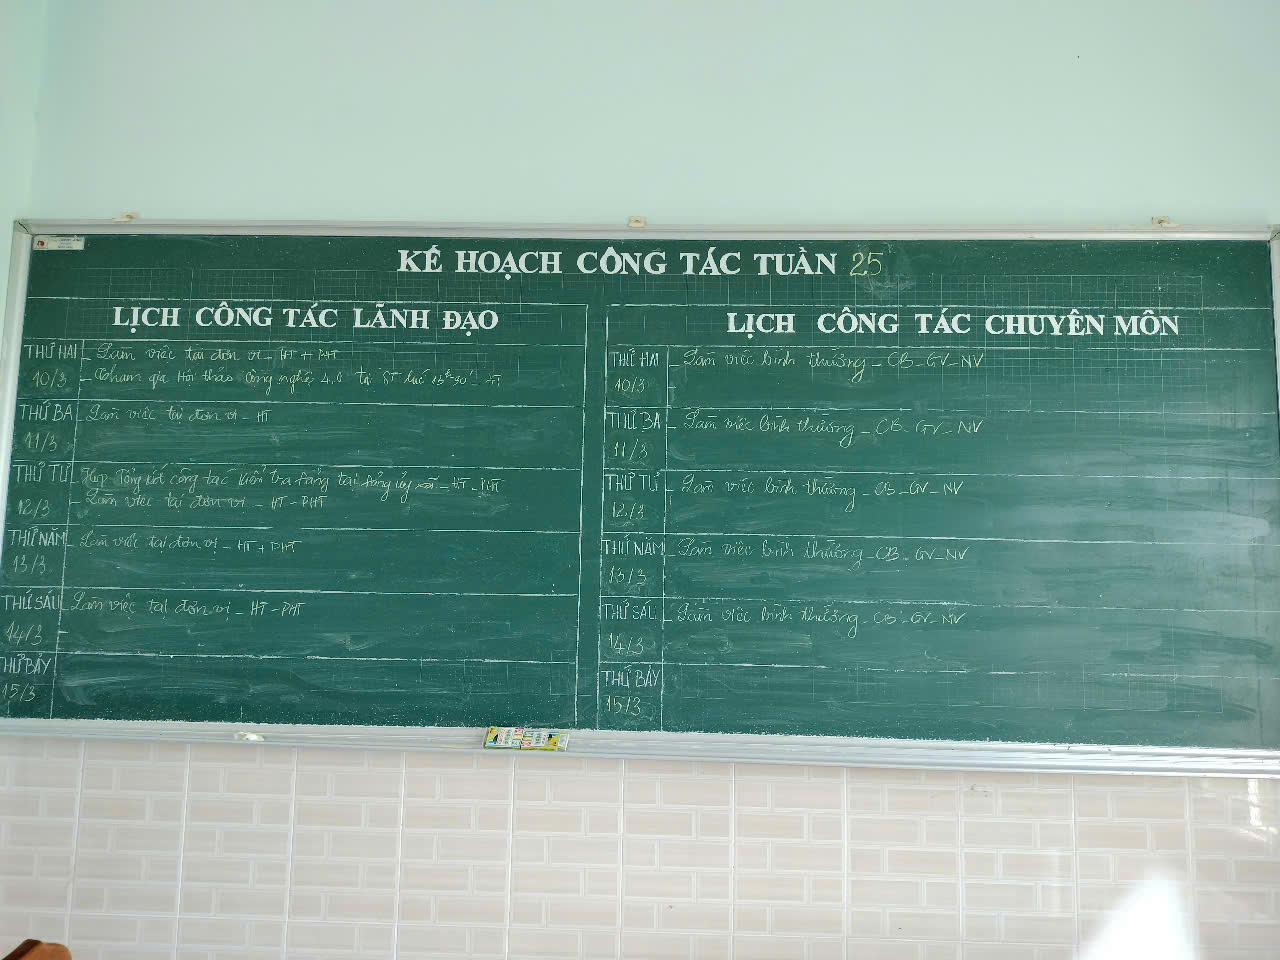 KẾ HOẠCH CÔNG TÁC TUẦN 25
LỊCH CÔNG TÁC LÃNH ĐẠO
THỨ HAI - Làm việc tại đơn vị - HT + PHT
10/3 - Tham gia Hội thảo Công nghệ 4.0 tại ST lúc 13h30' - HT
THỨ BA - Làm việc tại đơn vị - HT
11/3
THỨ TƯ - Họp Tổng kết công tác kiểm tra Đảng tại Đảng ủy xã - HT - PHT
12/3 - Làm việc tại đơn vị - HT - PHT
THỨ NĂM - Làm việc tại đơn vị - HT + PHT
13/3
THỨ SÁU - Làm việc tại đơn vị - HT - PHT
14/3 -
THỨ BẢY
15/3
LỊCH CÔNG TÁC CHUYÊN MÔN
THỨ HAI - Làm việc bình thường - CB - GV - NV
10/3 -
THỨ BA - Làm việc bình thường - CB - GV - NV
11/3
THỨ TƯ - Làm việc bình thường - CB - GV - NV
12/3
THỨ NĂM - Làm việc bình thường - CB - GV - NV
13/3
THỨ SÁU - Làm việc bình thường - CB - GV - NV
14/3
THỨ BẢY
15/3